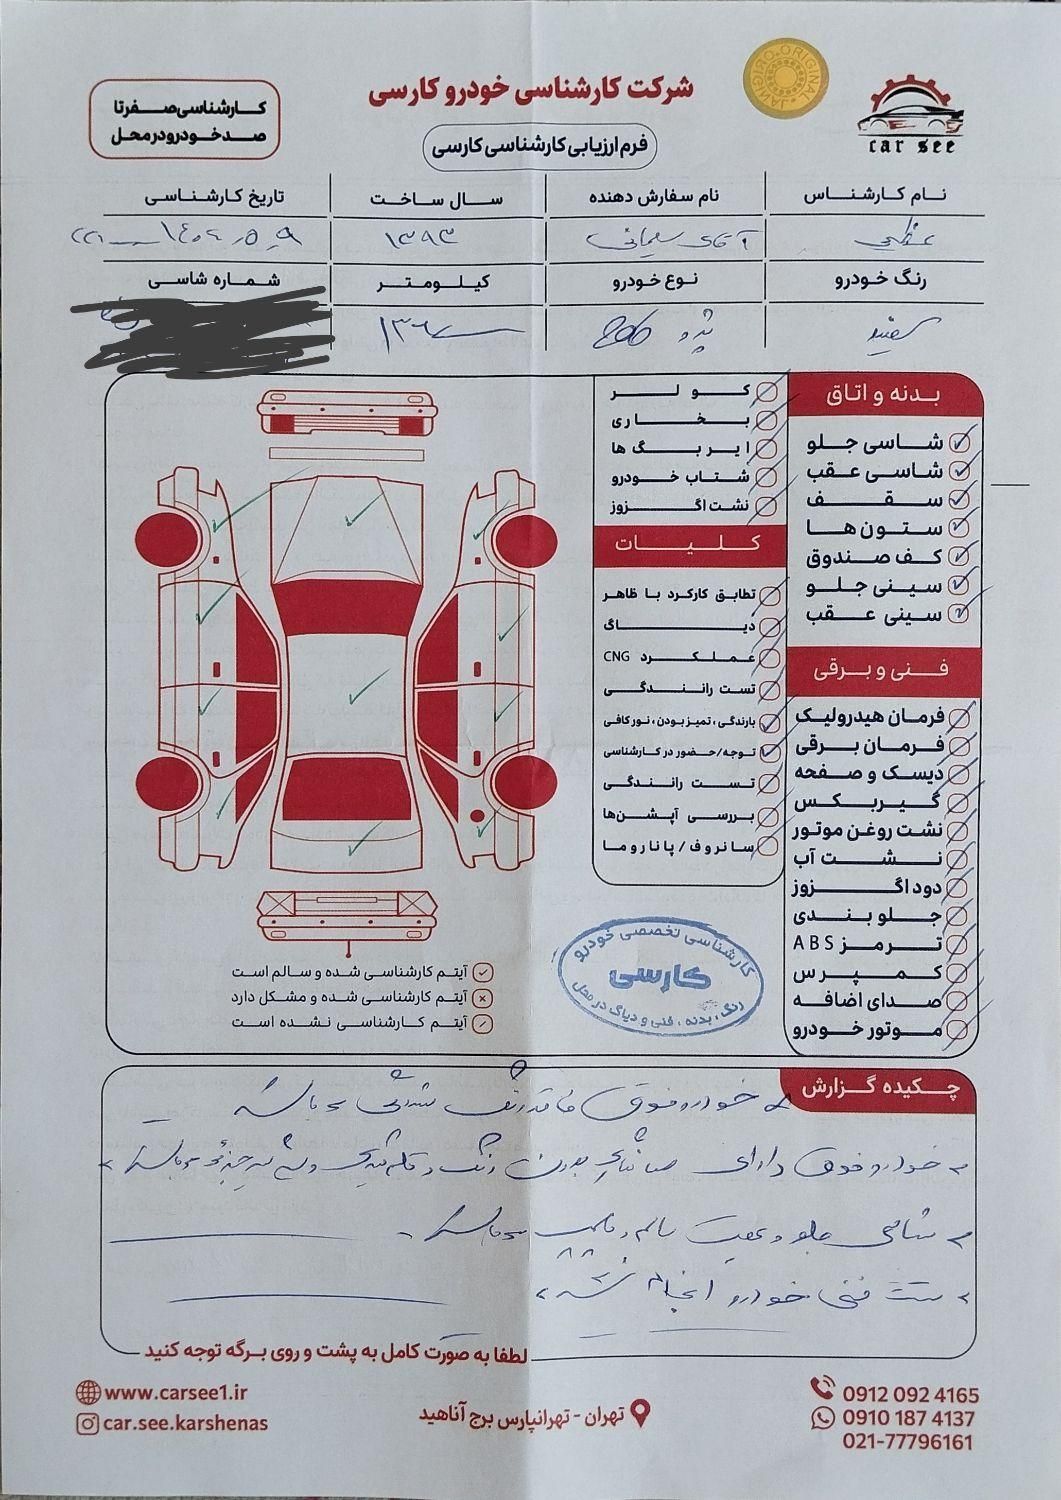 شرکت کارشناسی خودرو کارسی
فرم ارزیابی کارشناسی کارسی
کارشناسی صفر تا
صد خودرو در محل
car see
ORIGINAL
نام کارشناس
نام سفارش دهنده
سال ساخت
تاریخ کارشناسی
آقای سلیمانی
۱۳۹۳
رنگ خودرو
نوع خودرو
کیلومتر
شماره شاسی
سفید
پژو 206
بدنه و اتاق
شاسی جلو
شاسی عقب
سقف
ستون ها
کف صندوق
سینی جلو
سینی عقب
فنی و برقی
فرمان هیدرولیک
فرمان برقی
دیسک و صفحه
گیربکس
نشت روغن موتور
نشت آب
دود اگزوز
جلوبندی
ترمز ABS
کمپرس
صدای اضافه
موتور خودرو
کولر
بخاری
ایربگ ها
شتاب خودرو
نشت اگزوز
کلیات
تطابق کارکرد با ظاهر
دیاگ
عملکرد CNG
تست رانندگی
بارندگی، تمیز بودن، نور کافی
توجه/حضور در کارشناسی
تست رانندگی
بررسی آپشن‌ها
سانروف / پاناروما
آیتم کارشناسی شده و سالم است
آیتم کارشناسی شده و مشکل دارد
آیتم کارشناسی نشده است
کارشناسی تخصصی خودرو
کارسی
رنگ، بدنه، فنی و دیاگ در محل
چکیده گزارش
خودرو فوق فاقد رنگ شدگی می باشد
خودرو فوق دارای
شاسی جلو و عقب سالم و پلمپ می باشد
تست فنی خودرو انجام نشد
لطفا به صورت کامل به پشت و روی برگه توجه کنید
www.carsee1.ir
car.see.karshenas
تهران - تهرانپارس برج آناهید
0912 092 4165
0910 187 4137
021-77796161